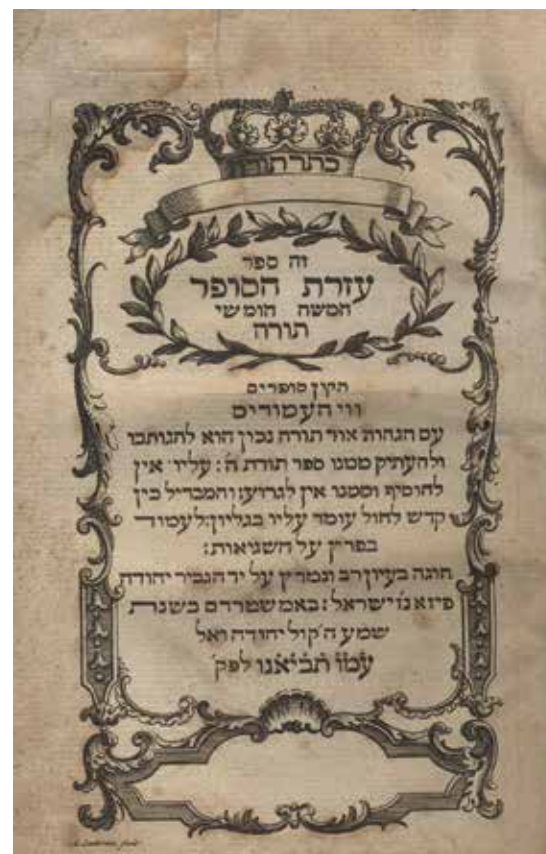 כתר תורה
זה ספר
עזרת הסופר
חמשה חומשי
תורה
תקון סופרים
ווי העמודים
עם הגהות אור תורה נכון הוא להגותבו
ולהעתיק ממנו ספר תורת ה': עליו אין
להוסיף וממנו אין לגרוע: והמבדיל בין
קדש לחול עומד עליו בגליון: לעמוד
בפרץ על השגיאות:
הוגה בעיון רב ונמרץ על יד הגביר יהודה
פיזא נז ישראל: באמשטרדם בשנת
שמע ה' קול יהודה ואל
עמו תביאנו לפק